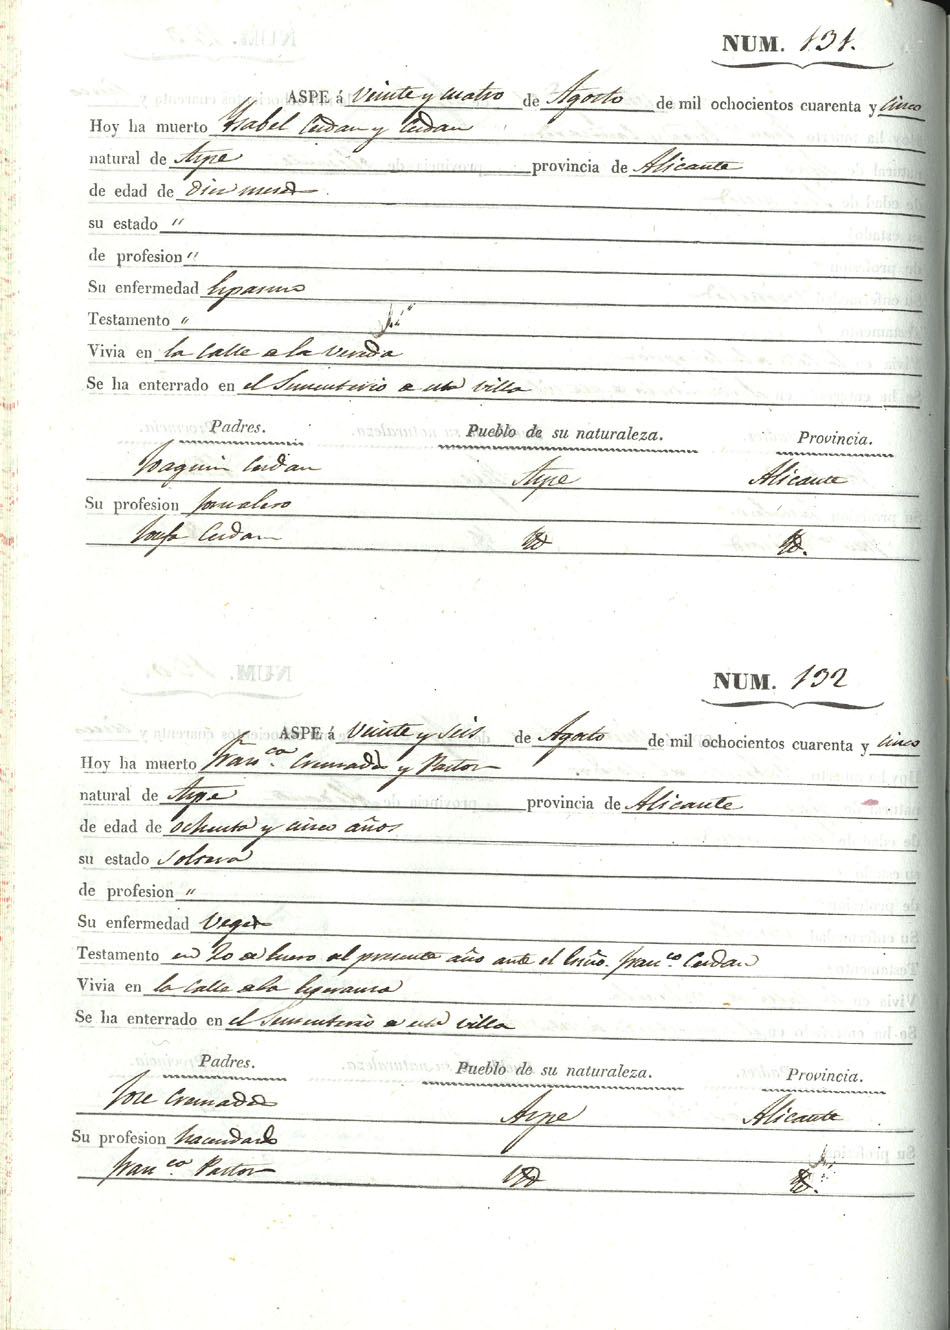 NUM. 131.
ASPE á Veinte y cuatro de Agosto de mil ochocientos cuarenta y cinco
Hoy ha muerto Ysabel Cerdan y Cerdan
natural de Aspe provincia de Alicante
de edad de Diez meses
su estado "
de profesion "
Su enfermedad Espasmo
Testamento "
Vivia en la Calle de la Vereda
Se ha enterrado en el Sementerio de esta villa
Padres. Pueblo de su naturaleza. Provincia.
Joaquin Cerdan Aspe Alicante
Su profesion Jornalero
Josefa Cerdan Yd Yd.
NUM. 132
ASPE á Veinte y Seis de Agosto de mil ochocientos cuarenta y cinco
Hoy ha muerto Franca. Cremades y Pastor
natural de Aspe provincia de Alicante
de edad de ochenta y cinco años
su estado Soltera
de profesion "
Su enfermedad Vegez
Testamento en 20 de Enero del presente año ante el Esño. Franco. Cerdan
Vivia en la Calle de la Esperanza
Se ha enterrado en el Sementerio de esta villa
Padres. Pueblo de su naturaleza. Provincia.
Jose Cremades Aspe Alicante
Su profesion hacendado
Franca. Pastor Yd Yd.